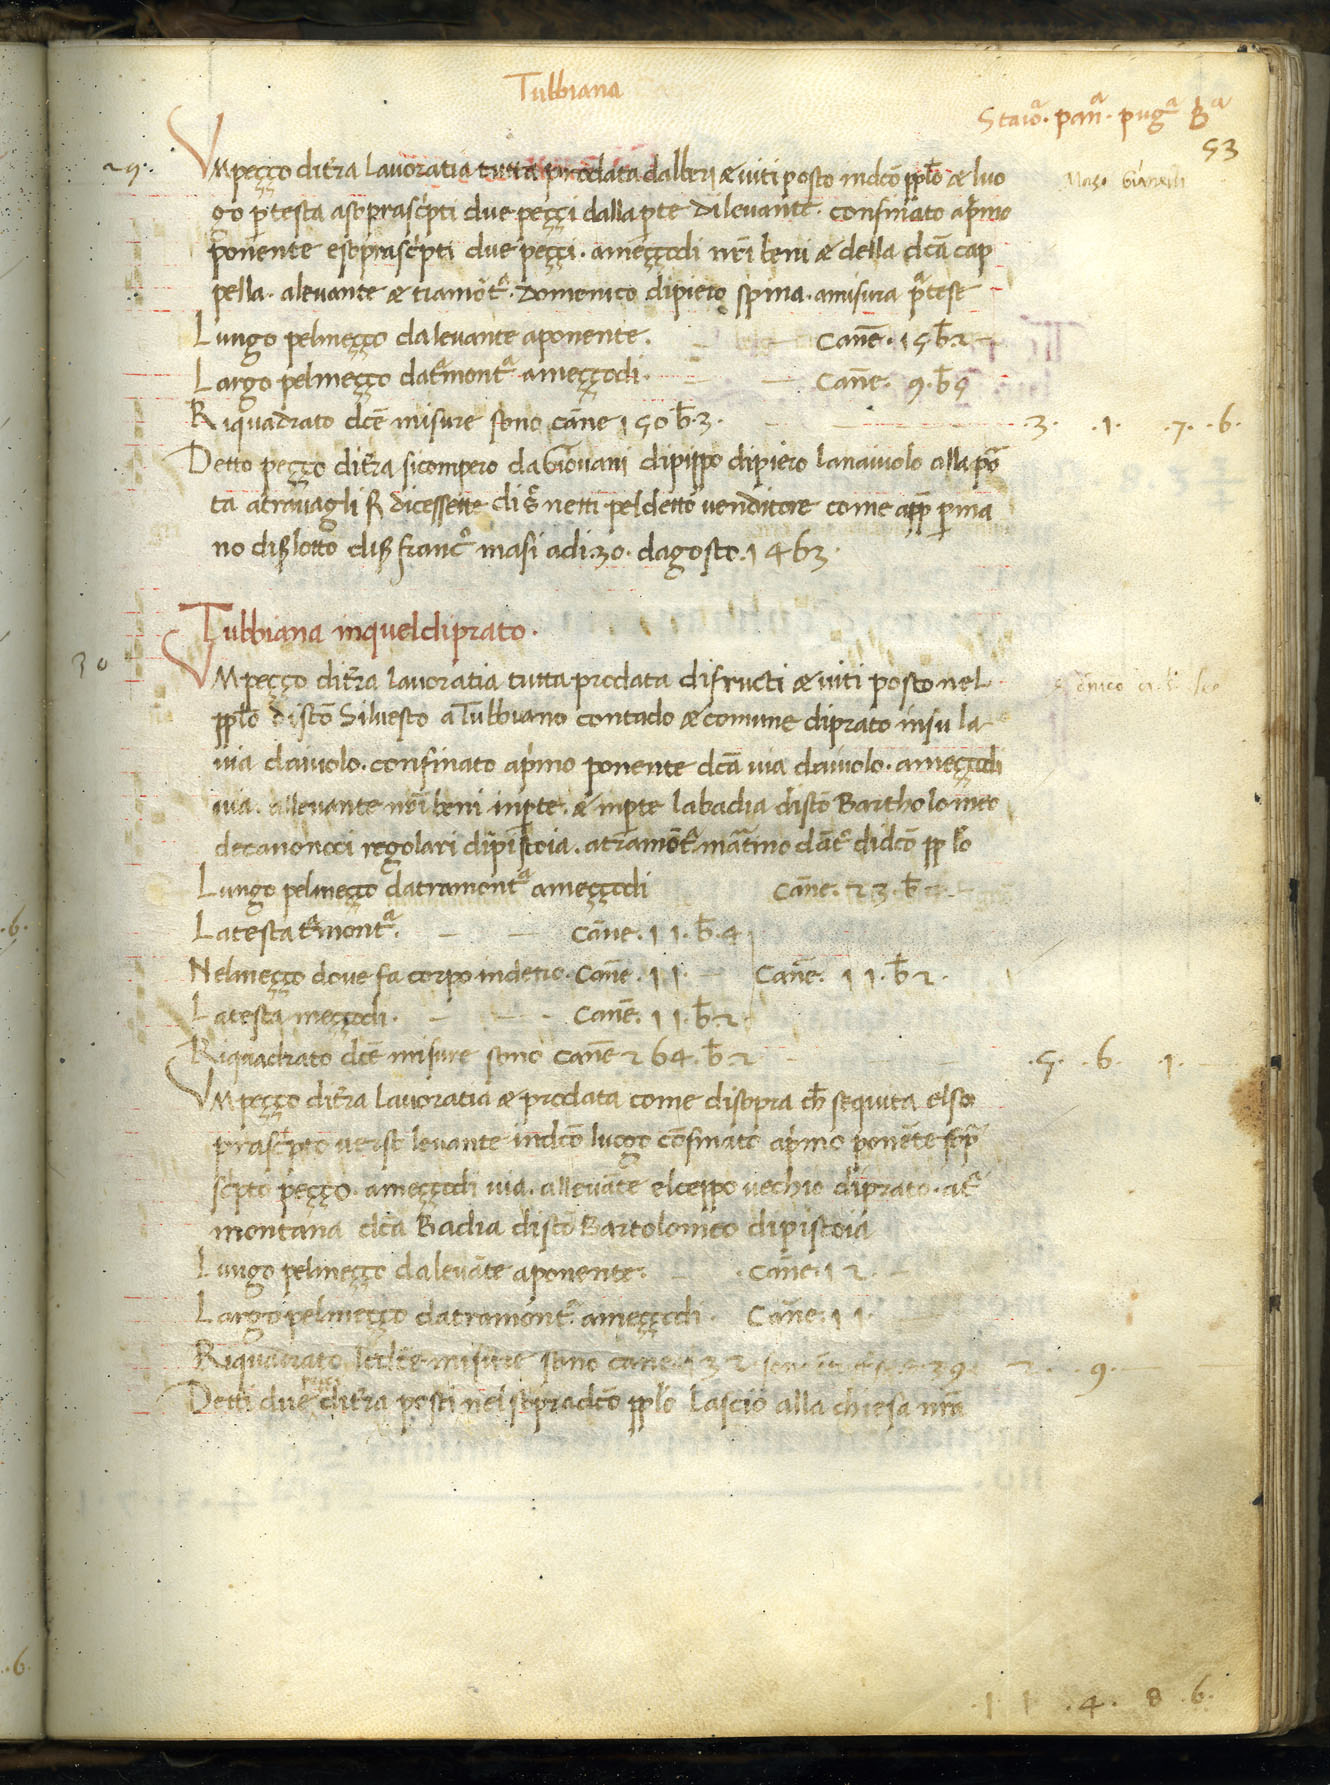 Tubbiana
Staioᵃ. panᵃ. pugᵃ Bᵃ
53
29.
VM peçço dit̄ra lavoratia tutta prodata dalberi æ viti posto indc̄o pp̄lo æ luo
go p testa asoprascipti due peççi dalla pte dilevante. confinato apimo
ponente esoprascipti due peççi. ameççodi nr̄i beni æ della dc̄a cap
pella. alevante æ tramōtᵃ. Domenico dipiero spina. amisura pᵃtese
Lungo pelmeçço dalevante aponente. Canē. 15 b̄ 2
Largo pelmeçço dat̄montᵃ ameççodi. Cañe. 9. b̄ 5
Riquadrato dcē misure sono cāne 150 b̄. 3. .3. .1. .7. .6.
Detto peçço dit̄ra sicompero da Giovani dipippo dipiero lanaiuolo alla poᵃ
ta atravagli fl dicessette di netti peldetto venditore come app̄ p ma
no di lotto di francº masi adi. 30. dagosto. 1463.
Tubbiana inqueldiprato.
30
VM peçço dit̄ra lavoratia tutta prodata difructi æ viti posto nel
pp̄lo discō Silvesto a Tubbiano contado æ comune diprato insu la
via daiuolo. confinato apimo ponente dc̄a via daiuolo. ameççodi
via. allevante nr̄i beni inpte. æ inpte labadia discō Bartholomeo
decanonoci regolari dipistoia. atramōtᵃ. martino didc̄o pp̄lo
Lungo pelmeçço datramontᵃ ameççodi Cāne. 23. b̄ 2
Latesta t̄montᵃ. Cāne. 11. b̄. 4
Nelmeçço dove fa corpo indetro. Canē. 11. Canē. 11. b̄ 2.
Latesta meççodi. Canē. 11. b̄. 2.
Riquadrato dcē misure sono canē 264. b̄ 2 .5. .6. .1.
VM peçço dit̄ra lavoratia æ prodata come disopra ch̄ sequita elso
prascipto verso levante indc̄o luogo cōfinato apimo ponēte sop̄
scpto peçço. ameççodi via. allevāte elceppo vechio diprato. atᵃ
montana dc̄a Badia discō Bartolomeo dipistoia
Lungo pelmeçço dalevāte aponente. Cāne. 12.
Largo pelmeçço datramontᵃ ameççodi. Cāne. 11.
Riquadrato ledcē misure sono cane. 132 2. .9.
Detti due peçi dit̄ra posti nelsopradc̄o pp̄lo lascio alla chiesa nr̄a
.11 .4. 8 .6.